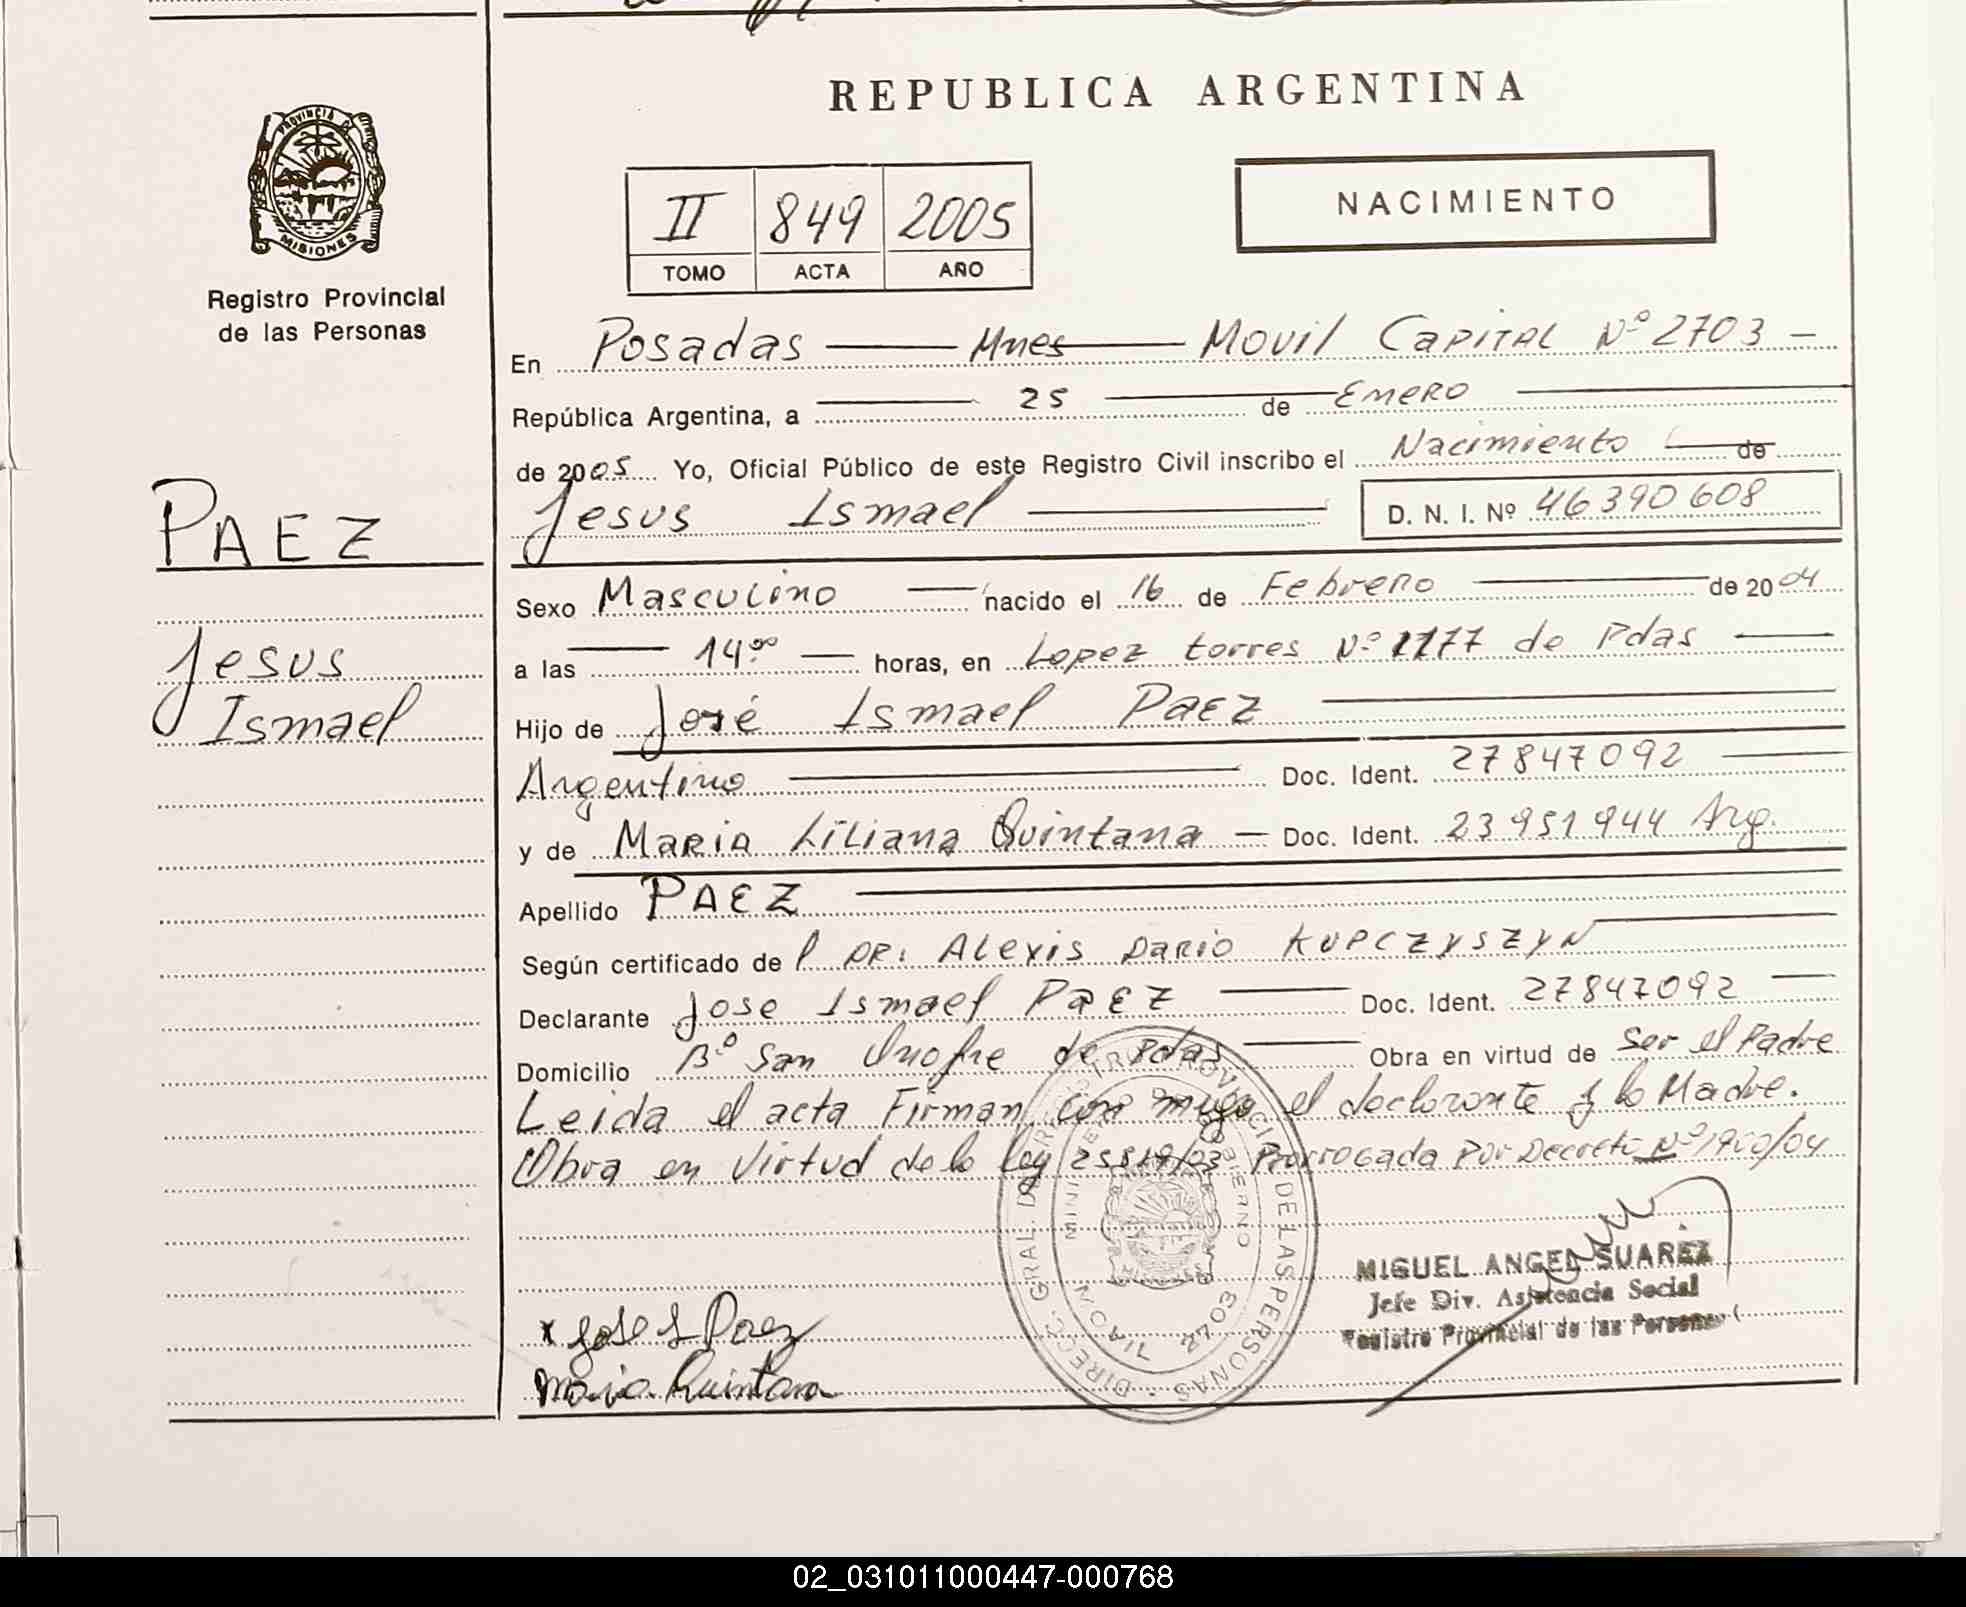 REPUBLICA ARGENTINA
PROVINCIA DE
MISIONES
Registro Provincial
de las Personas
II 849 2005
TOMO ACTA AÑO
NACIMIENTO
En Posadas Mnes Movil Capital Nº 2703 -
República Argentina, a 25 de Enero
de 2005 Yo, Oficial Público de este Registro Civil inscribo el Nacimiento de
Jesus Ismael D. N. I. Nº 46390608
PAEZ
Jesus
Ismael
Sexo Masculino nacido el 16 de Febrero de 2004
a las 14.00 horas, en Lopez torres Nº 1177 de Pdas
Hijo de José Ismael Paez
Argentino Doc. Ident. 27847092
y de Maria Liliana Quintana - Doc. Ident. 23951944 Arg.
Apellido PAEZ
Según certificado de DR. Alexis Dario KUPCZYSZYN
Declarante Jose Ismael Paez Doc. Ident. 27847092
Domicilio Bº San Onofre de Pdas Obra en virtud de Ser el Padre
Leida el acta Firman con migo el declarante y la Madre.
Obra en Virtud de la ley 25819/03 Prorrogada Por Decreto Nº 1700/04
DIREC. GRAL. DEL REGISTRO PROVINCIAL DE LAS PERSONAS
MISIONES
MIGUEL ANGEL SUAREZ
Jefe Div. Asistencia Social
Registro Provincial de las Personas
x Jose I Paez
Maria Quintana
02_031011000447-000768